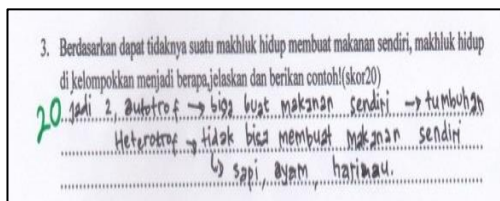 3. Berdasarkan dapat tidaknya suatu makhluk hidup membuat makanan sendiri, makhluk hidup
di kelompokkan menjadi berapa,jelaskan dan berikan contoh!(skor20)
20 jadi 2, autotrof → bisa buat makanan sendiri → tumbuhan
Heterotrof → tidak bisa membuat makanan sendiri
↳ sapi, ayam, harimau.